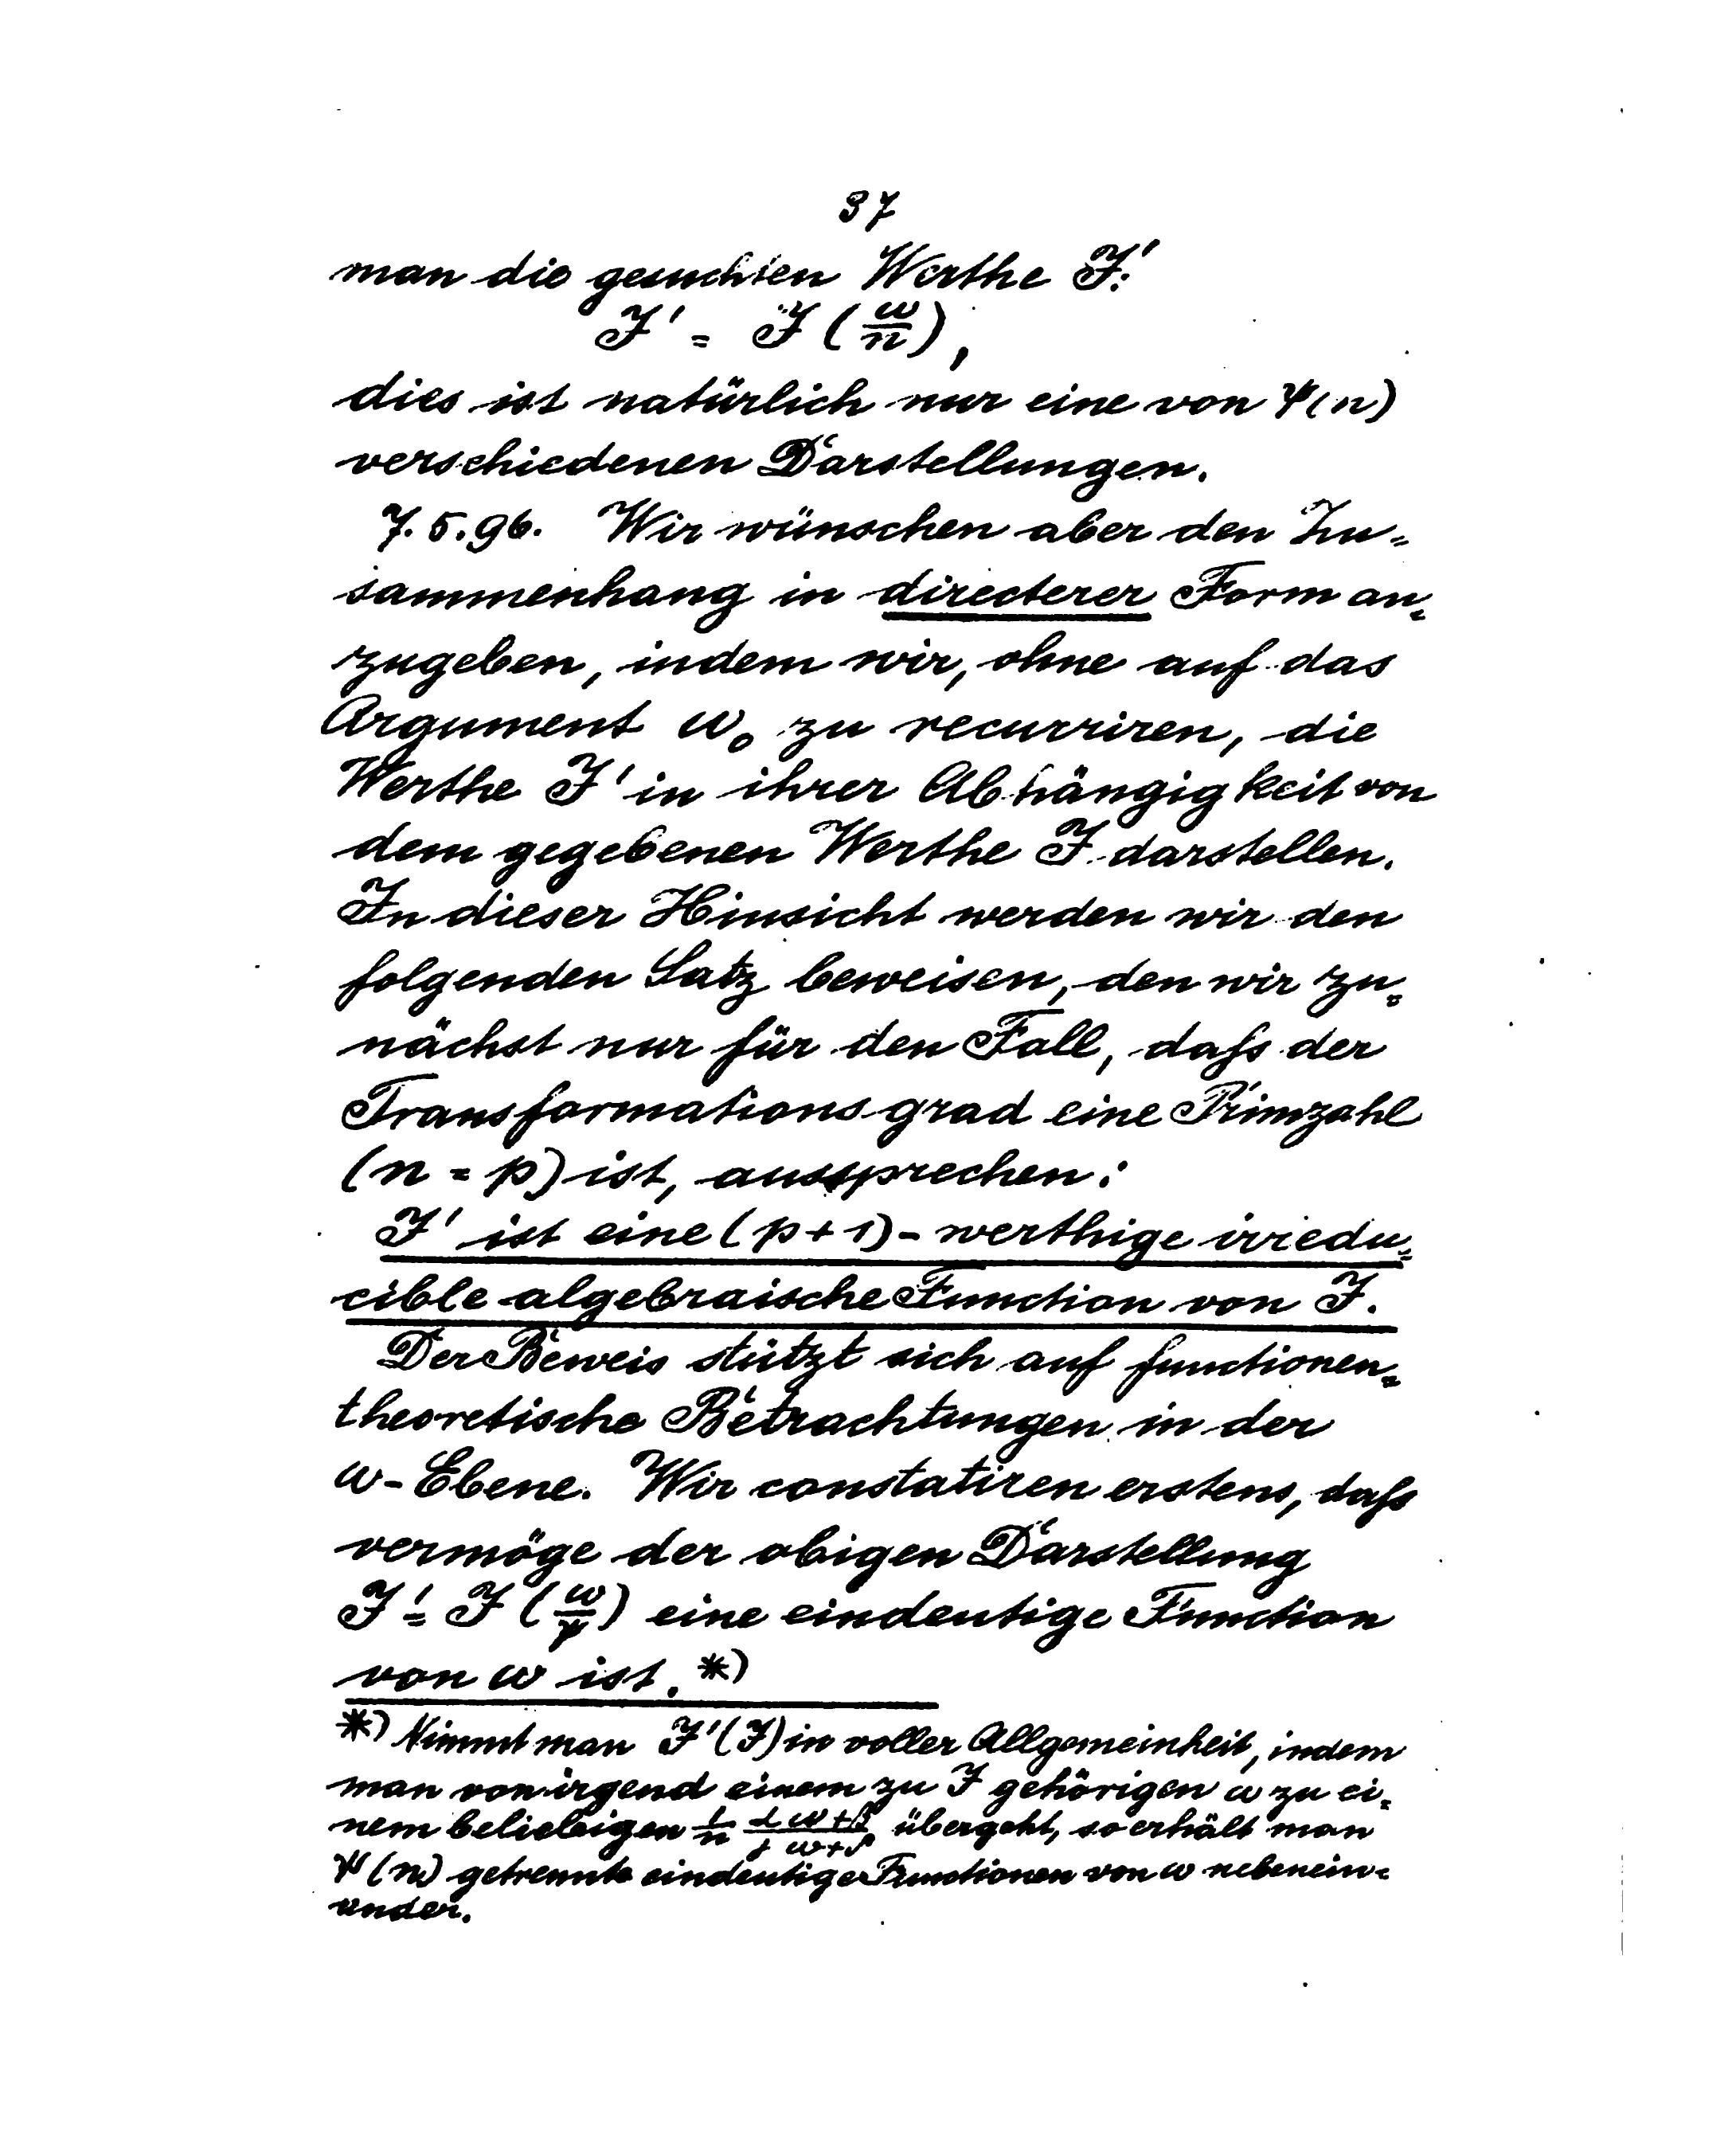 37
man die gesuchten Werthe J':
J' = J (ω/n),
dies ist natürlich nur eine von ψ(n)
verschiedenen Darstellungen.
7.5.96. Wir wünschen aber den Zu=
sammenhang in directerer Form an=
zugeben, indem wir, ohne auf das
Argument ω₀ zu recurriren, die
Werthe J' in ihrer Abhängigkeit von
dem gegebenen Werthe J darstellen.
In dieser Hinsicht werden wir den
folgenden Satz beweisen, den wir zu=
nächst nur für den Fall, daſs der
Transformationsgrad eine Primzahl
(n = p) ist, aussprechen:
J' ist eine (p+1)-werthige irredu=
cible algebraische Function von J.
Der Beweis stützt sich auf functionen=
theoretische Betrachtungen in der
ω-Ebene. Wir constatiren erstens, daſs
vermöge der obigen Darstellung
J' = J (ω/p) eine eindeutige Function
von ω ist. *)
*) Nimmt man J'(J) in voller Allgemeinheit, indem
man von irgend einem zu J gehörigen ω zu ei=
nem beliebigen 1/n (αω+β)/(γω+δ) übergeht, so erhält man
ψ(n) getrennte eindeutige Functionen von ω nebenein=
ander.